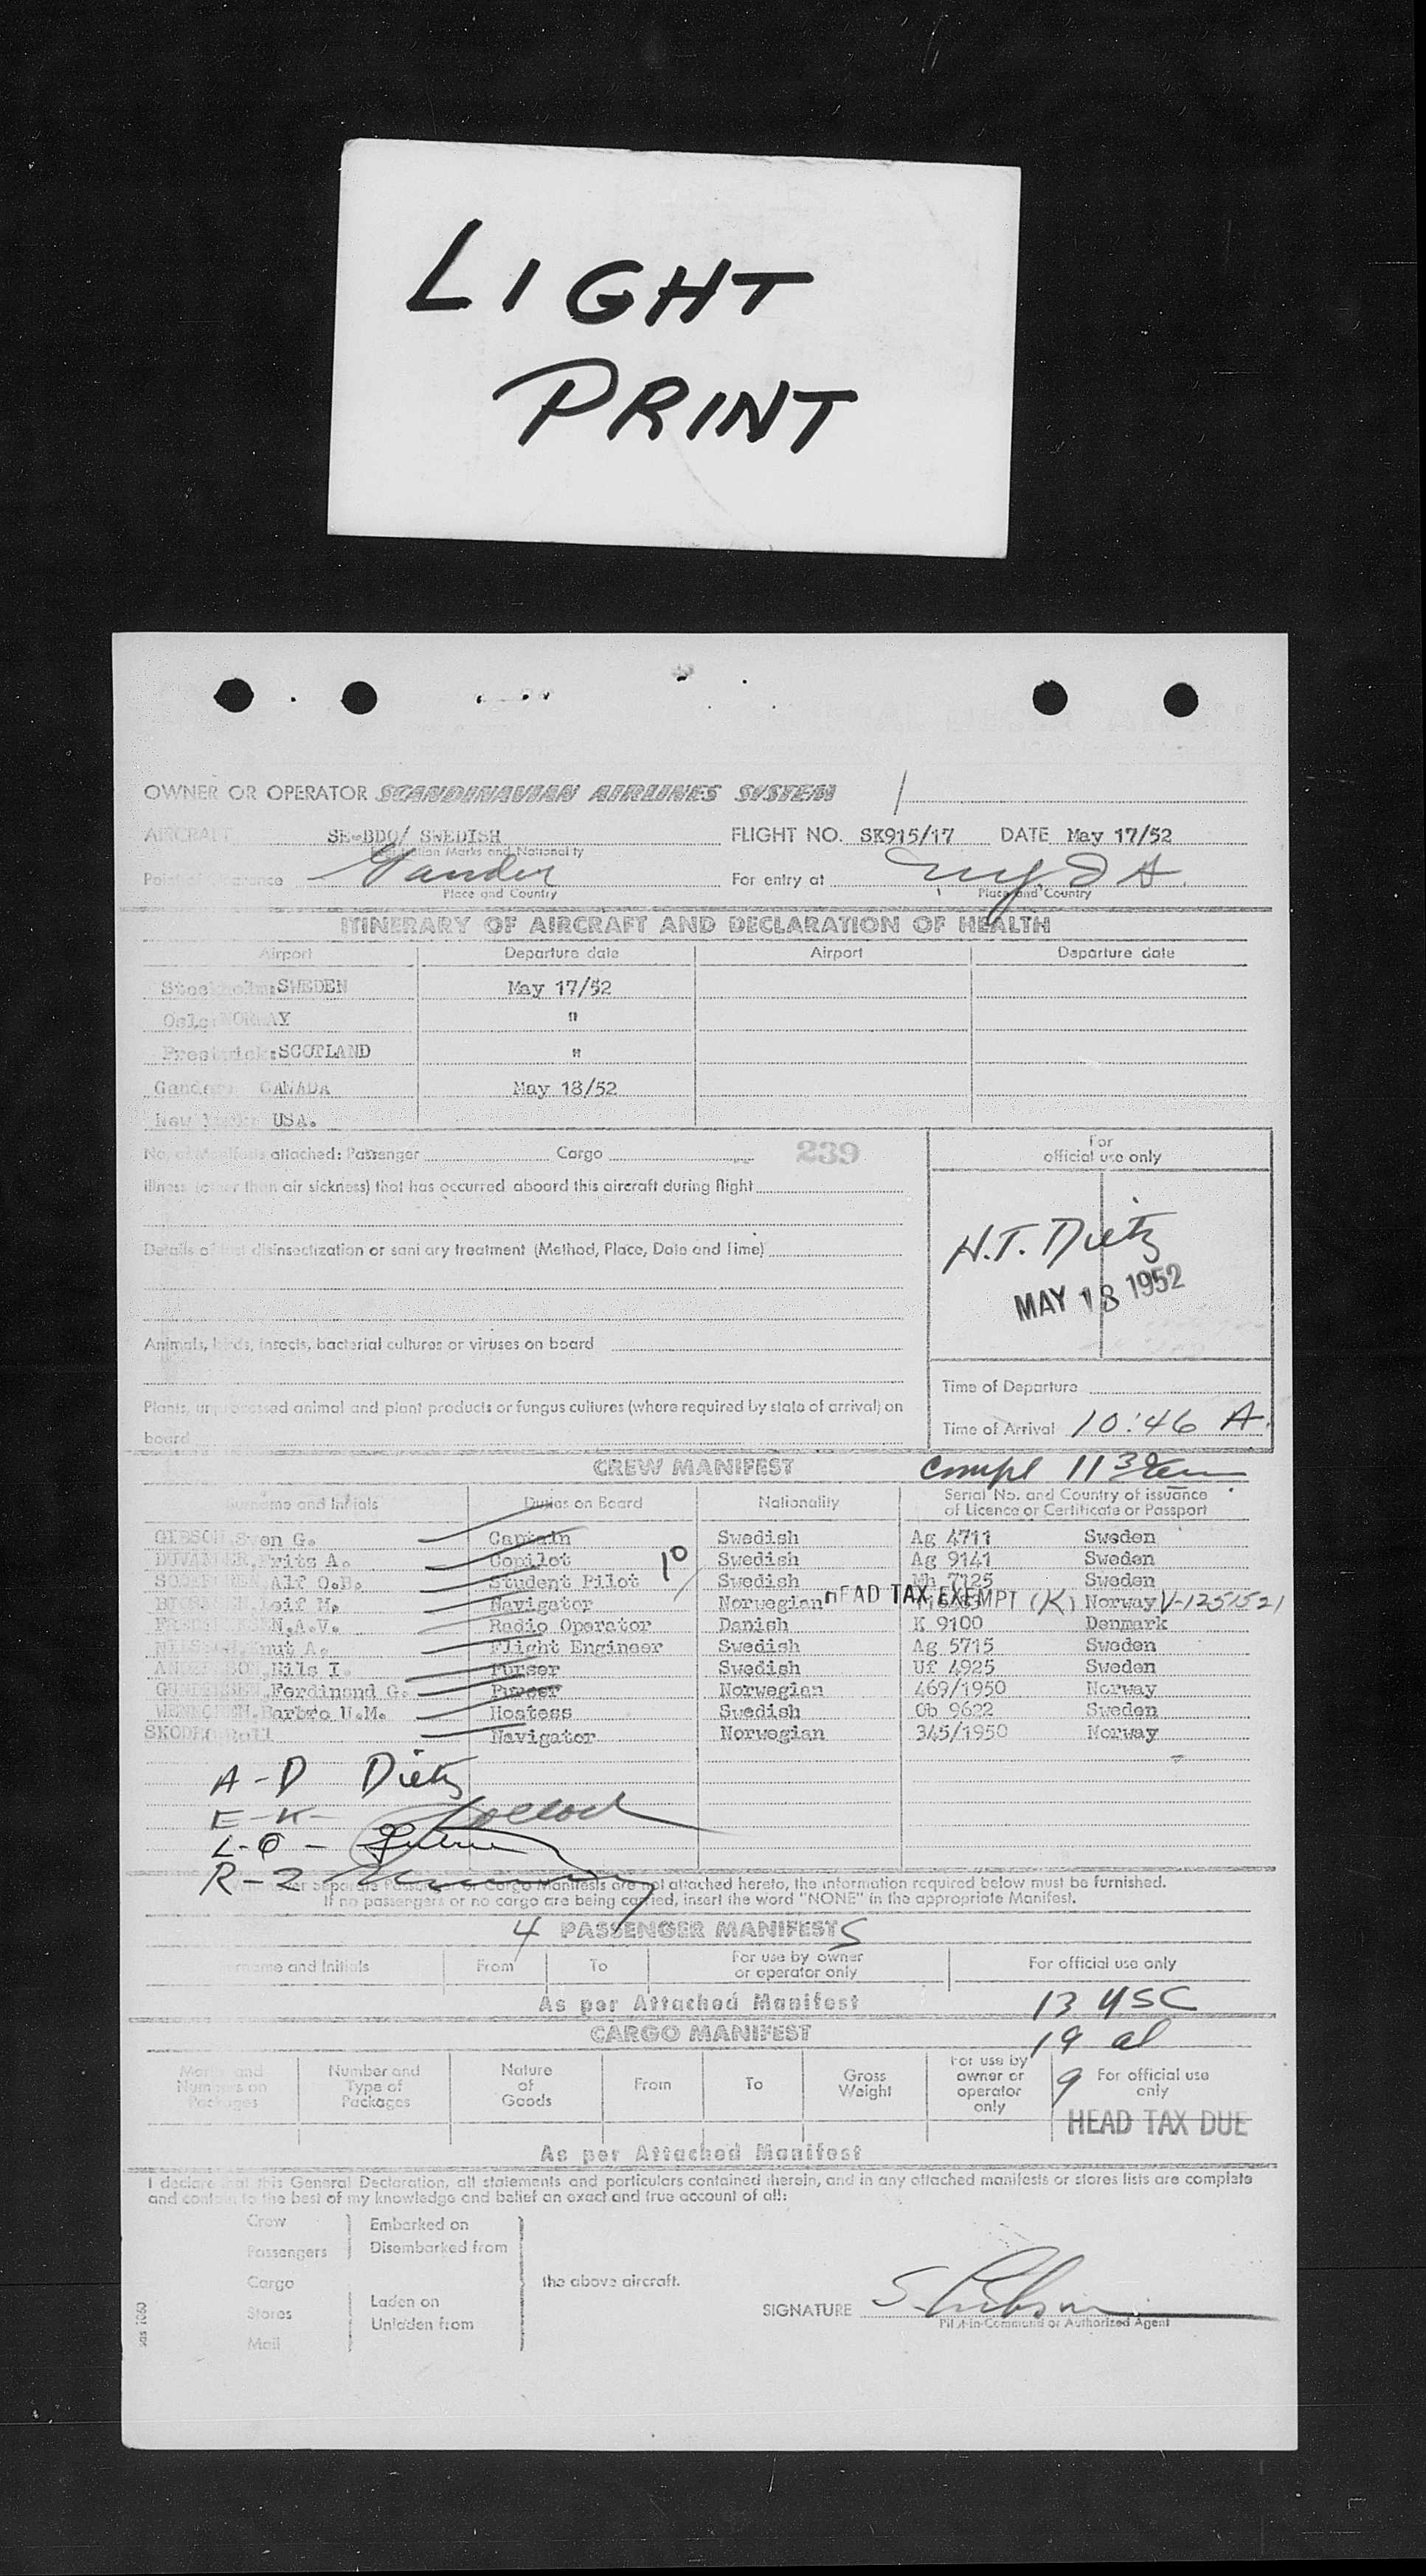 LIGHT
PRINT
OWNER OR OPERATOR SCANDINAVIAN AIRLINES SYSTEM
AIRCRAFT SE-BDO/ SWEDISH FLIGHT NO. SK915/17 DATE May 17/52
Marks and Nationality
Gander For entry at
Place and Country Place and Country
ITINERARY OF AIRCRAFT AND DECLARATION OF HEALTH
Airport Departure date Airport Departure date
Stockholm:SWEDEN May 17/52
Oslo:NORWAY "
Prestwick:SCOTLAND "
Gander: CANADA May 18/52
New York: USA.
For
official use only
No. of Manifests attached: Passenger Cargo 239
illness (other than air sickness) that has occurred aboard this aircraft during flight
H.T. Dietz
MAY 18 1952
Details of last disinsectization or sanitary treatment (Method, Place, Date and Time)
Animals, birds, insects, bacterial cultures or viruses on board
Time of Departure
Plants, unprocessed animal and plant products or fungus cultures (where required by state of arrival) on
board
Time of Arrival 10:46 A.
CREW MANIFEST Compl 11
Surname and Initials Duties on Board Nationality Serial No. and Country of issuance
of Licence or Certificate or Passport
GIBSON, Sven G. Captain Swedish Ag 4711 Sweden
Frits A. Copilot Swedish Ag 9141 Sweden
10
Alf O.B. Student Pilot Swedish 7125 Sweden
Leif M. Navigator Norwegian HEAD TAX EXEMPT (K) Norway V-1251521
A.V. Radio Operator Danish K 9100 Denmark
Knut A. Flight Engineer Swedish Ag 5715 Sweden
Nils I. Purser Swedish Uf 4925 Sweden
Ferdinand G. Purser Norwegian 469/1950 Norway
Barbro U.M. Hostess Swedish Ob 9622 Sweden
Navigator Norwegian 345/1950 Norway
A-D Dietz
E-K-
L-Q -
R-Z
Manifests are not attached hereto, the information required below must be furnished.
If no passengers or no cargo are being carried, insert the word "NONE" in the appropriate Manifest.
4 PASSENGER MANIFESTS
Surname and Initials From To For use by owner
or operator only For official use only
As per Attached Manifest 13 USC
CARGO MANIFEST 19 al
Marks and
Numbers on
Packages Number and
Type of
Packages Nature
of
Goods From To Gross
Weight For use by
owner or
operator
only 9 For official use
only
HEAD TAX DUE
As per Attached Manifest
I declare that this General Declaration, all statements and particulars contained therein, and in any attached manifests or stores lists are complete
and contain to the best of my knowledge and belief an exact and true account of all:
Crew Embarked on
Passengers Disembarked from
Cargo the above aircraft.
Stores Laden on
Mail Unladen from
SIGNATURE S. Gibson
Pilot-in-Command or Authorized Agent
sas 1060